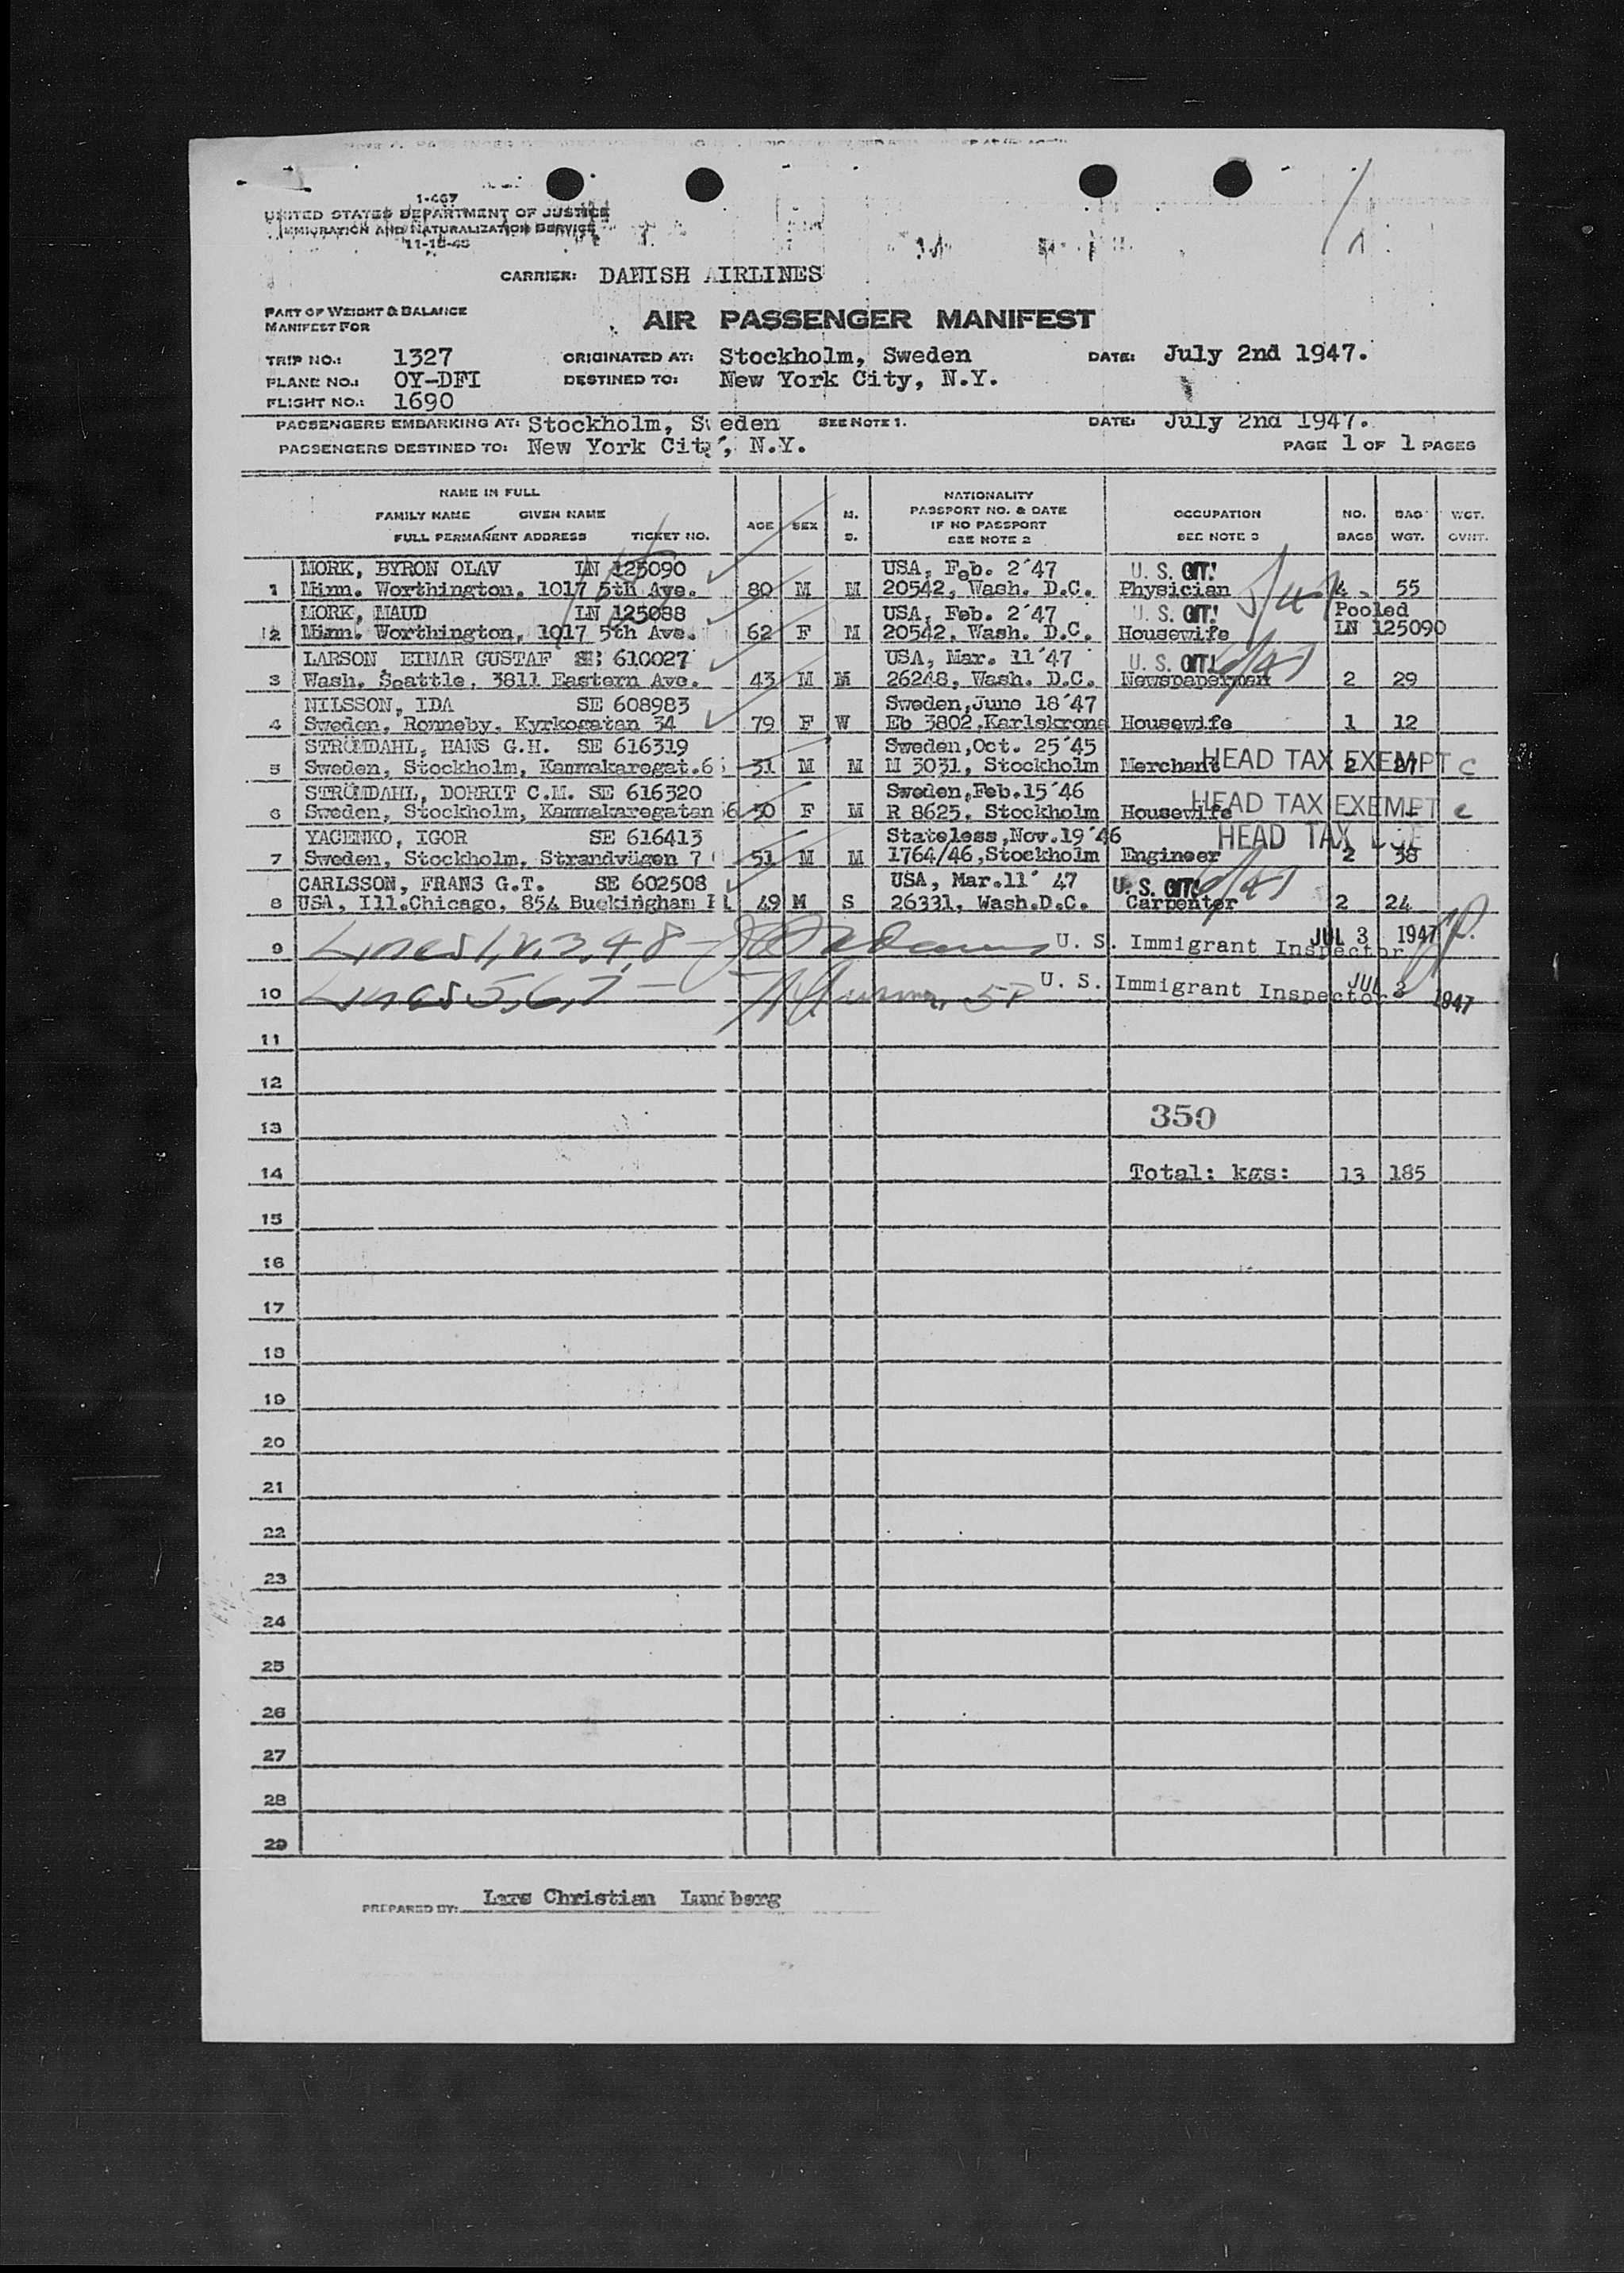 1-467
UNITED STATES DEPARTMENT OF JUSTICE
IMMIGRATION AND NATURALIZATION SERVICE
11-18-45
CARRIER: DANISH AIRLINES
PART OF WEIGHT & BALANCE
MANIFEST FOR
AIR PASSENGER MANIFEST
TRIP NO.: 1327 ORIGINATED AT: Stockholm, Sweden DATE: July 2nd 1947.
PLANE NO.: OY-DFI DESTINED TO: New York City, N.Y.
FLIGHT NO.: 1690
PASSENGERS EMBARKING AT: Stockholm, Sweden SEE NOTE 1. DATE: July 2nd 1947.
PASSENGERS DESTINED TO: New York City, N.Y. PAGE 1 OF 1 PAGES
NAME IN FULL NATIONALITY
FAMILY NAME GIVEN NAME AGE SEX M. PASSPORT NO. & DATE OCCUPATION NO. BAG WGT.
IF NO PASSPORT
FULL PERMANENT ADDRESS TICKET NO. S. SEE NOTE 2 SEE NOTE 3 BAGS WGT. OVHT.
MORK, BYRON OLAV LN 125090 USA, Feb. 2'47 U. S. CIT.
1 Minn. Worthington, 1017 5th Ave. 80 M M 20542, Wash. D.C. Physician 4 55
MORK, MAUD LN 125088 USA, Feb. 2'47 U. S. CIT. Pooled
2 Minn. Worthington, 1017 5th Ave. 62 F M 20542, Wash. D.C. Housewife LN 125090
LARSON EINAR GUSTAF SE 610027 USA, Mar. 11'47 U. S. CIT.
3 Wash. Seattle, 3811 Eastern Ave. 43 M M 26248, Wash. D.C. Newspaperman 2 29
NILSSON, IDA SE 608983 Sweden,June 18'47
4 Sweden, Ronneby, Kyrkogatan 34 79 F W Eb 3802,Karlskrona Housewife 1 12
STRÖMDAHL, HANS G.H. SE 616319 Sweden,Oct. 25'45
5 Sweden, Stockholm, Kammakaregat.6 51 M M M 3031, Stockholm Merchant HEAD TAX EXEMPT C 2
STRÖMDAHL, DORRIT C.M. SE 616320 Sweden,Feb.15'46
6 Sweden, Stockholm, Kammakaregatan 6 50 F M R 8625, Stockholm Housewife HEAD TAX EXEMPT C
YAGENKO, IGOR SE 616413 Stateless,Nov.19'46 HEAD TAX DUE
7 Sweden, Stockholm, Strandvägen 7 51 M M 1764/46,Stockholm Engineer 2 38
CARLSSON, FRANS G.T. SE 602508 USA, Mar.11' 47 U. S. CIT.
8 USA, Ill.Chicago, 854 Buckingham Pl 49 M S 26331, Wash.D.C. Carpenter 2 24
9 Lines 1, 2, 3, 4, 8 - U. S. Immigrant Inspector JUL 3 1947
10 Lines 5, 6, 7 - U. S. Immigrant Inspector JUL 3 1947
11
12
13 350
14 Total: kgs: 13 185
15
16
17
18
19
20
21
22
23
24
25
26
27
28
29
PREPARED BY: Lars Christian Lundberg